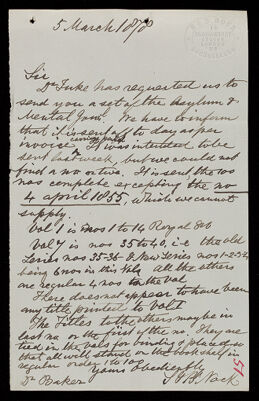 5 March 1878
Sir
Dr Tuke has requested us to
send you a set of the Asylum &
Mental Jour. We have to inform
that it is sent off to day as per
invoice carriage paid It was intended to be
sent last week, but we could not
find a no or two. It is sent the 100
nos complete excepting the no
4 april 1855, which we cannot
supply.
Vol 1 is nos 1 to 14 Royal 8vo
Vol 7 is nos 35 to 40, i.e the old
Series nos 35-36 & New Series nos 1-2-3-4
being 6 nos in this Vol. All the others
are regular 4 nos to the vol
There does not appear to have been
any title printed to Vol 1
The Titles to the others may be in
last no or the first of the no. They are
tied in the vols for binding & placed so
that all will stand on the bookshelf in
regular order 1 to 100
Yours obediently
Dr Baker